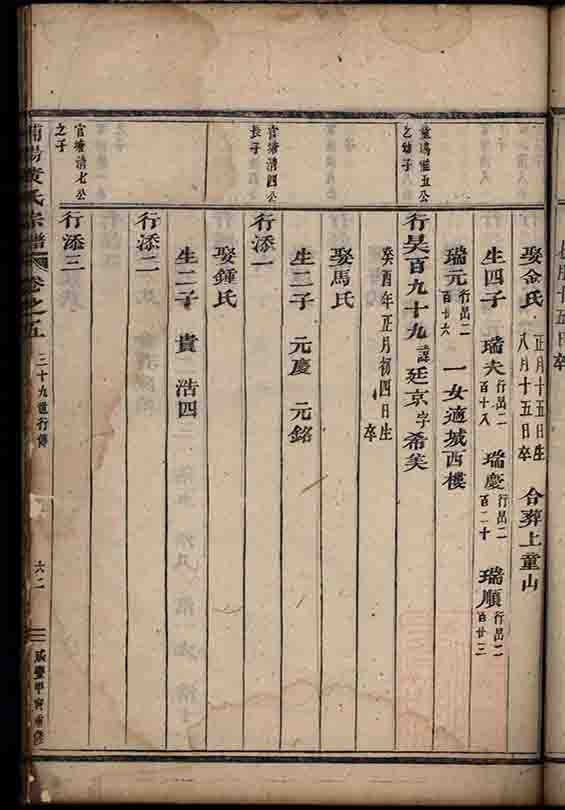 娶金氏 正月十五日生 八月十五日卒 合葬上童山
生四子 瑞夫 行昌二百十八 瑞慶 行昌二百二十 瑞順 行昌二百廿三
瑞元 行昌二百廿六 一女適城西樓
之幼子
行昊百九十九 諱廷京 字希美
癸酉年正月初四日生 卒
娶馬氏
生二子 元慶 元銘
官塘清四公長子
行添一
娶鍾氏
生二子 貴 浩四
行添二
官塘清七公之子
行添三
浦陽黄氏宗譜 卷之五 三十九世行傳 六二 咸豐甲寅重修